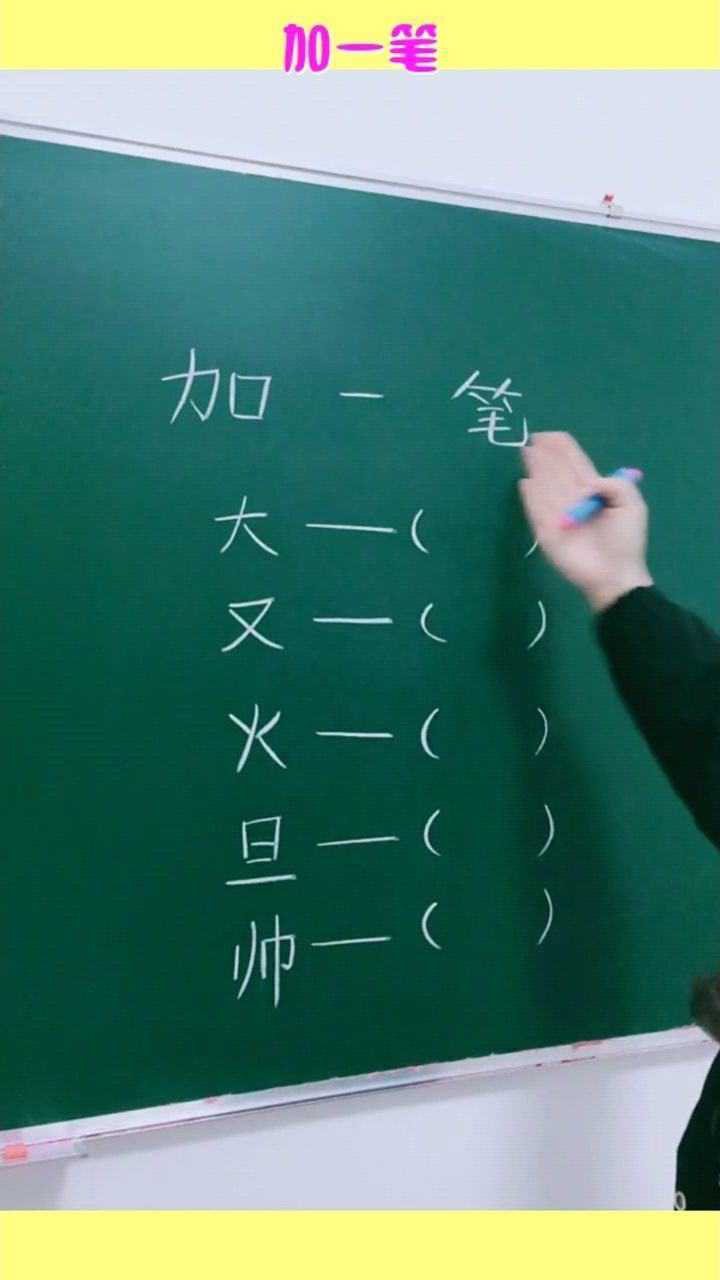 加一笔
加 一 笔
大 —( )
又 —( )
火 —( )
旦 —( )
帅 —( )